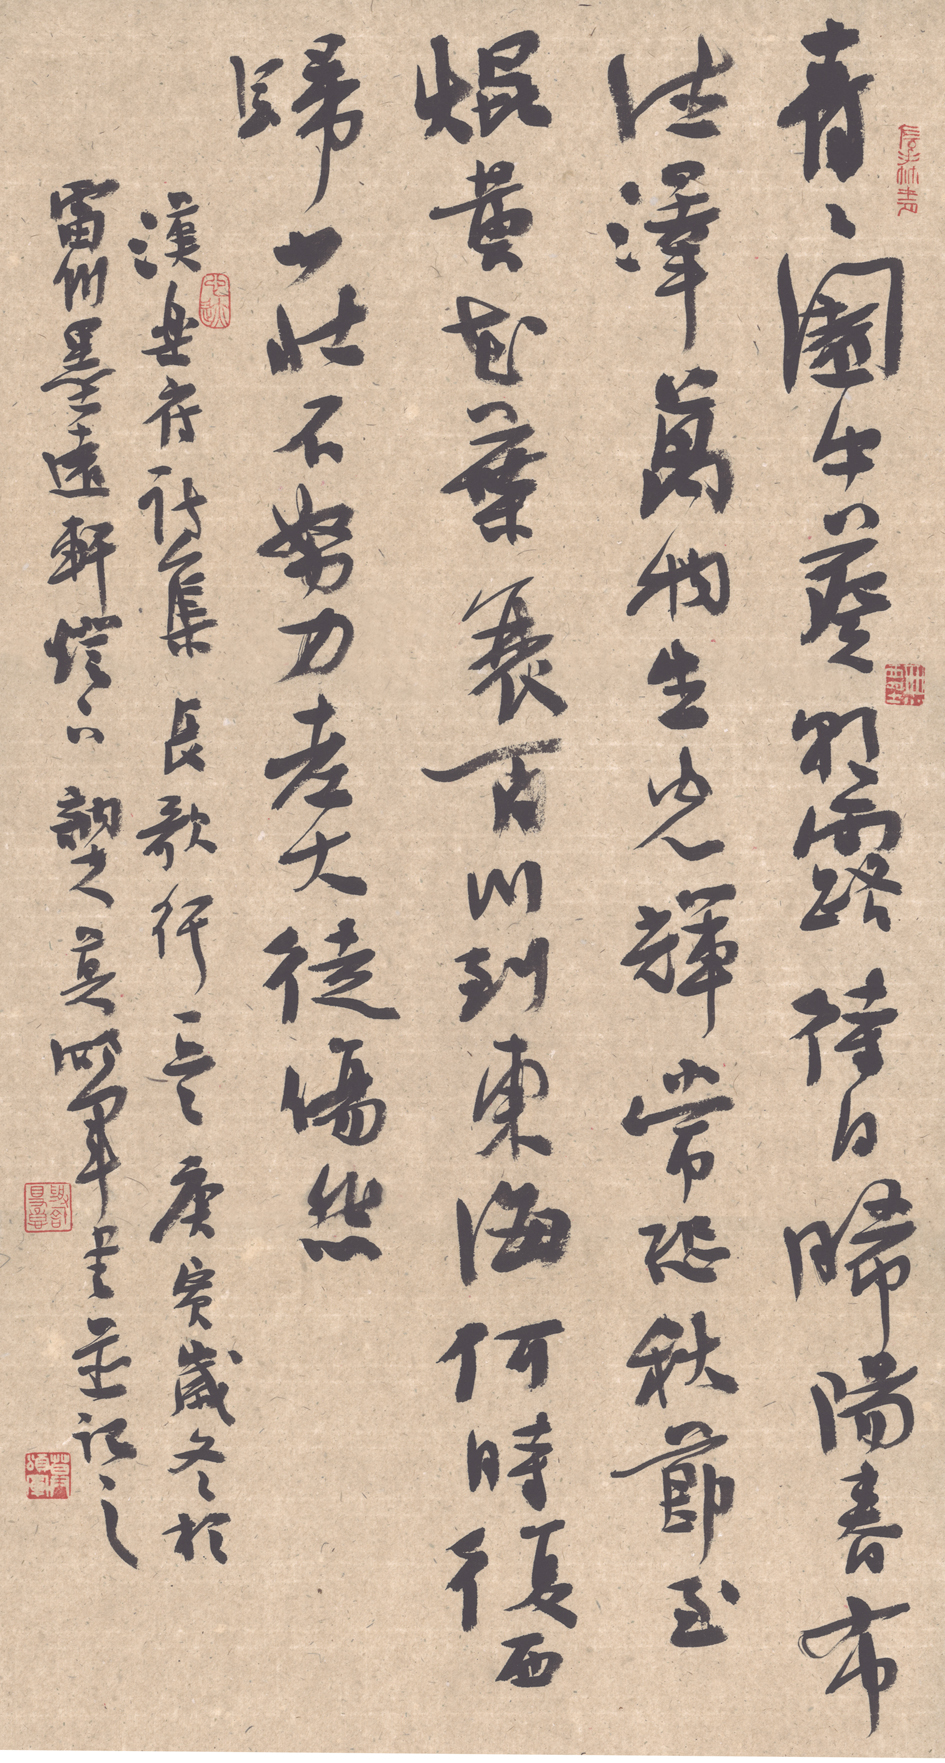 青々園中葵朝露待日晞陽春布
德澤萬物生光輝常恐秋節至
焜黃花葉衰百川到東海何時復西
歸少壯不努力老大徒傷悲
漢樂府詩集長歌行一首庚寅歲冬於
雷州墨遠軒燈下 書並記之